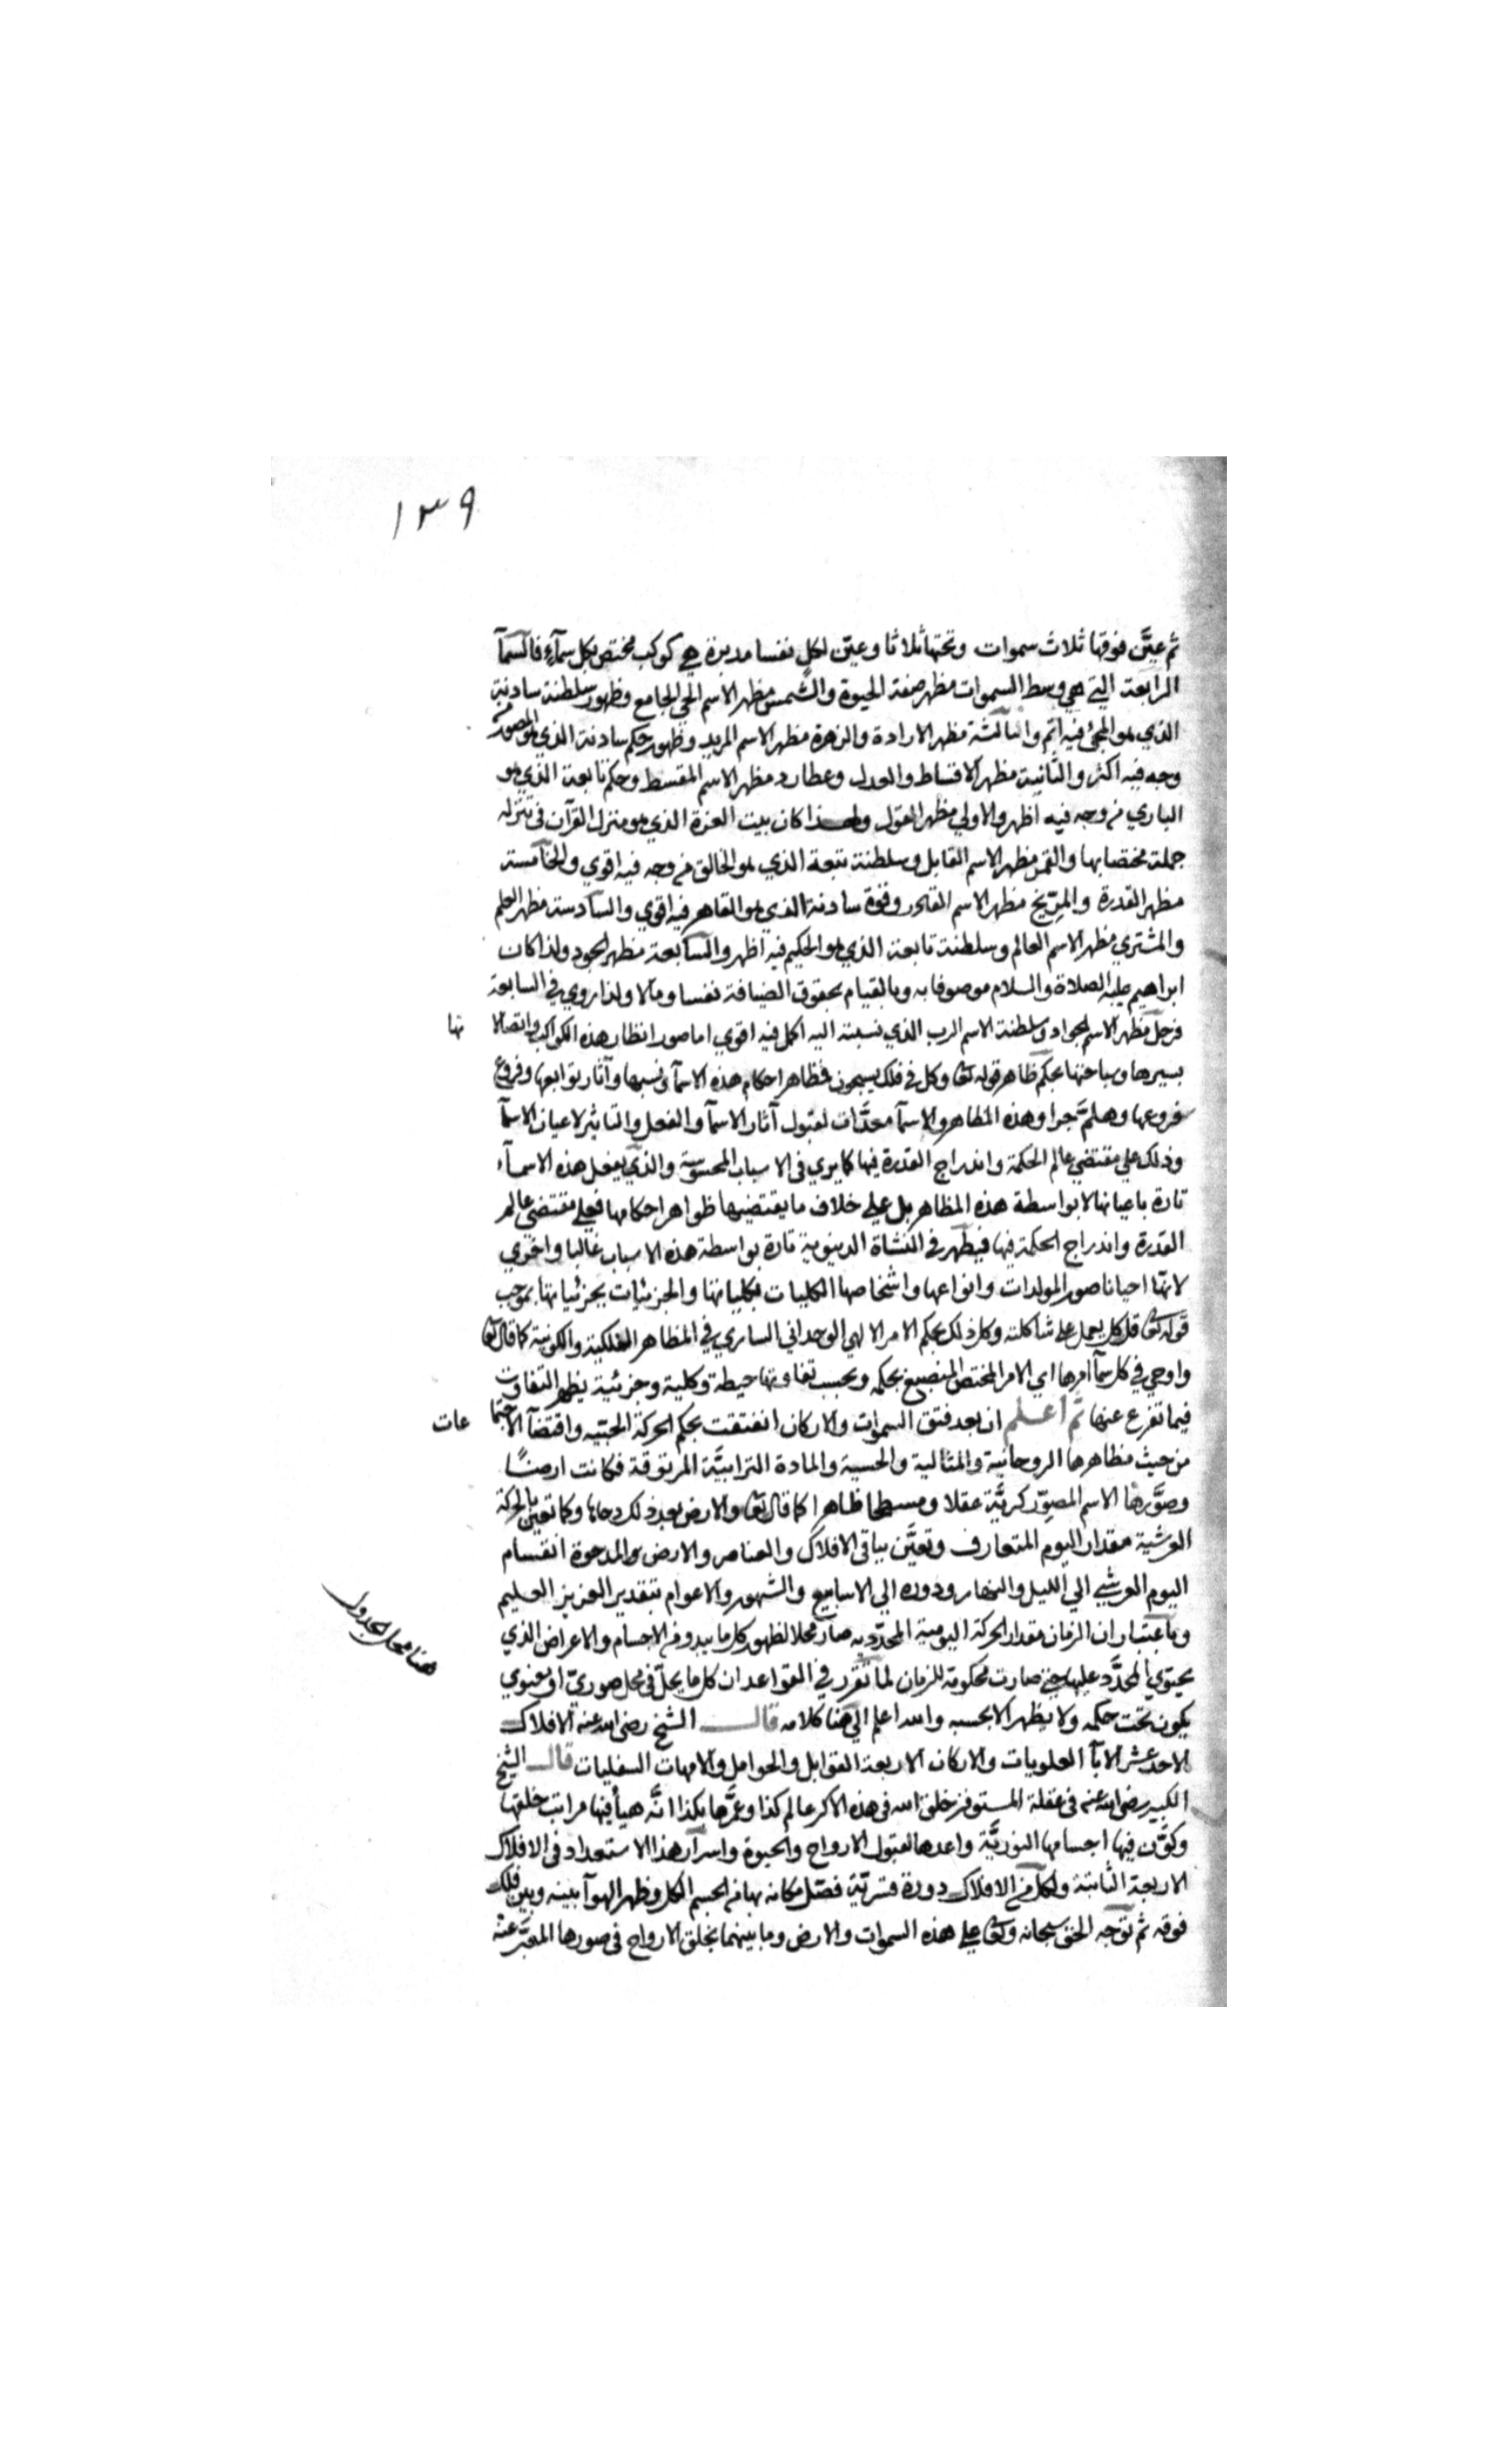 ١٣٩
ثم عيَّن فوقها ثلاث سموات وتحتها ثلاثا وعيّن لكل نفسا مدبرة هي كوكب مختص بكل سمآء فالسمآ
الرابعة التي هي وسط السموات مظهر صفة الحيوة والشمس مظهر الاسم الحي الجامع وظهور سلطنة سادنة
الذي هو المحيي فيه اتم والثالثة مظهر الارادة والزهرة مظهر الاسم المريد وظهور حكم سادنة الذي هو المصور من
وجه فيه اكثر والثانية مظهر الاقساط والعدل وعطارد مظهر الاسم المقسط وحكم تابعة الذي هو
الباري من وجه فيه اظهر والاولي مظهر القول ولهذا كان بيت العزة الذي هو منزل القرآن في تنزله
جملة مختصا بها والقمر مظهر الاسم القابل وسلطنة تبعة الذي هو الخالق من وجه فيه اقوي والخامسة
مظهر القدرة والمرّيخ مظهر الاسم القادر وقوة سادنة الذي هو القاهر فيه اقوي والسادسة مظهر العلم
والمشتري مظهر الاسم العالم وسلطنة تابعة الذي هو الحكيم فيه اظهر والسابعة مظهر الجود ولذا كان
ابراهيم عليه الصلاة والسلام موصوفا به وبالقيام بحقوق الضيافة نفسا ومالا ولذا روي في السابعة
فزحل مظهر الاسم الجواد وسلطنة الاسم الرب الذي نسبته اليه اكمل فيه اقوي اما صور انظار هذه الكواكب واتصالا تها
بسيرها وسباحتها بحكم ظاهر قوله تعا وكل في فلك يسبحون فظاهر احكام هذه الاسمآ ونسبها وآثار توابعها وفروع
فروعها وهلمَّ جرا وهذه المظاهر والاسمآ معدَّات لقبول آثار الاسمآ والفعل والتاثير لاعيان الاسمآ
وذلك علي مقتضي عالم الحكمة واندراج القدرة فيها كما يري في الاسباب المحسوسة والذي يفعل هذه الاسمآء
تارة باعيانها لا بواسطة هذه المظاهر بل علي خلاف ما يقتضيها ظواهر احكامها فعلي مقتضي عالم
القدرة واندراج الحكمة فيها فيظهر في النشأة الدنيوية تارة بواسطة هذه الاسباب غالبا واخري
لا بها احيانا صور المولدات وانواعها واشخاصها الكليات بكلياتها والجزئيات بجزئياتها بموجب
قوله تعا قل كل يعمل علي شاكلته وكل ذلك بحكم الامر الالهي الوحداني الساري في المظاهر الفلكية والكونية كما قال تعا
واوحي في كل سمآ امرها اي الامر المختص المنصبغ بحكمه وبحسب تفاوتها حيطة وكلية وجزئية يظهر التفاوت
فيما تفرع عنها ثم اعلم ان بعد فتق السموات والاركان انفتقت بحكم الحركة الحبّيه واقتضآ الاجتما عات
من حيث مظاهرها الروحانية والمثالية والحسية والمادة الترابيَّة المرتوقة فكانت ارضًا
وصوَّرها الاسم المصوّر كريَّة عقلا ومسطحا ظاهرا كما قال تعا والارض بعد ذلك دحاها وكما تعين بالحركة
العرشية مقدار اليوم المتعارف وتعيَّن بباقي الافلاك والعناصر والارض والمدحوة انقسام
اليوم العرشي الي الليل والنهار ودوره الي الاسابيع والشهور والاعوام بتقدير العزيز العليم
وباعتبار ان الزمان مقدار الحركة اليومية المحدّدية صار محلا لظهور كل ما يبدو من الاجسام والاعراض الذي
يحتوي المحدَّد عليها حتي صارت محكومة للزمان لما تقرر في القواعد ان كل ما يحلّ في محل صوريّ او معنوي
يكون تحت حكمه ولا يظهر الا بحسبه والله اعلم الي هنا كلامه قال الشيخ رضي الله عنه الافلاك
الاحد عشر الآبآ العلويات والاركان الاربعة القوابل والحوامل والامهات السفليات قال الشيخ
الكبير رضي الله عنه في عقلة المستوفز خلق الله في هذه الاكر عالم كذا وعمَّرها بكذا انَّه هيأ فيها مراتب خلقها
وكوَّن فيها اجسامها النوريَّة واعدها لقبول الارواح والحيوة واسرار هذا الاستعداد في الافلاك
الاربعة الثابتة ولكل من الافلاك دورة قسريّة فصّل مكانه بها من الجسم الكل وظهر الهوآ بينه وبين فلك
فوقه ثم توجه الحق سبحانه وتعا علي هذه السموات والارض وما بينهما بخلق الارواح في صورها المعبَّر عنه
هنا محل الجدول